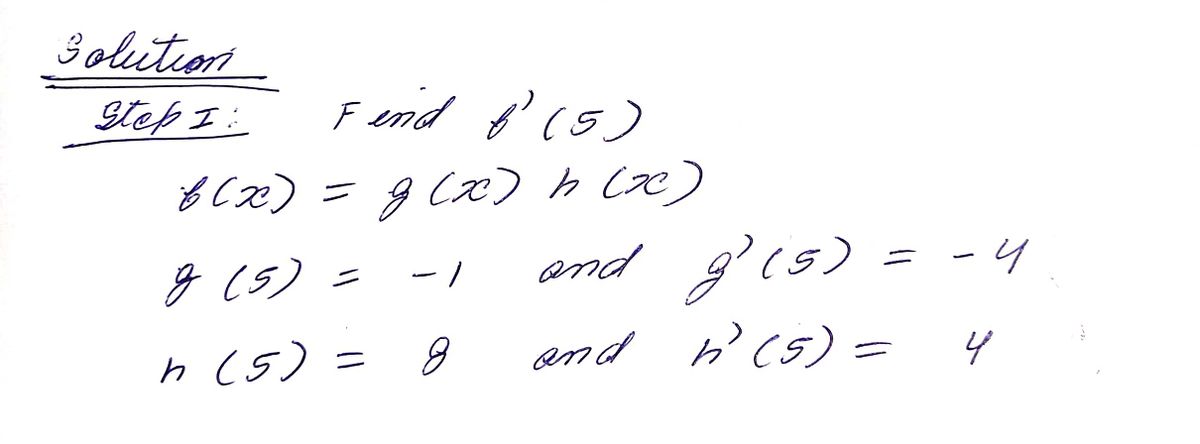 Solution
Step I: Find f'(5)
f(x) = g(x) h(x)
g(5) = -1 and g'(5) = -4
h(5) = 8 and h'(5) = 4